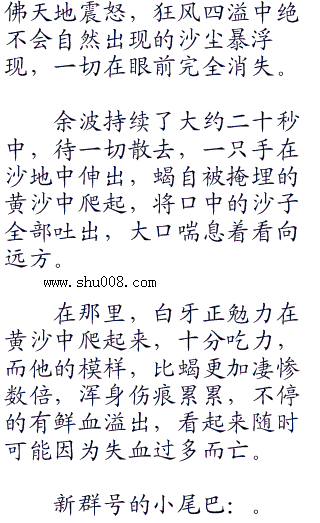 佛天地震怒，狂风四溢中绝
不会自然出现的沙尘暴浮
现，一切在眼前完全消失。
余波持续了大约二十秒
中，待一切散去，一只手在
沙地中伸出，蝎自被掩埋的
黄沙中爬起，将口中的沙子
全部吐出，大口喘息着看向
远方。
www.shu008.com
在那里，白牙正勉力在
黄沙中爬起来，十分吃力，
而他的模样，比蝎更加凄惨
数倍，浑身伤痕累累，不停
的有鲜血溢出，看起来随时
可能因为失血过多而亡。
新群号的小尾巴：。